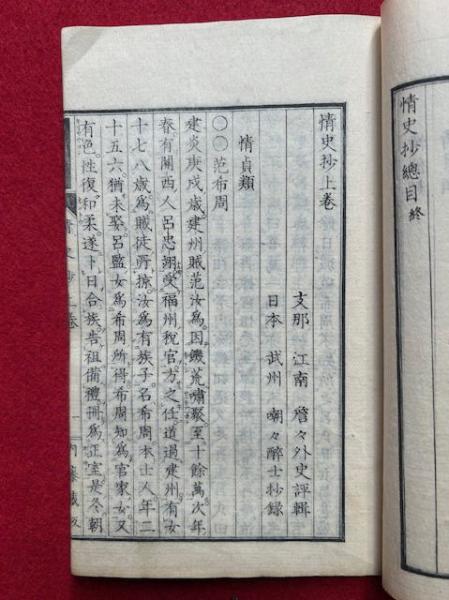 情史抄總目終
情史抄上卷
支那 江南 詹々外史評輯
日本 武州 嘲々醉士抄録
情貞類
○○范希周
建炎庚戌歳建州賊范汝爲。因饑荒嘯聚至十餘萬次年
春有關西人呂忠翊。受福州稅官。方之任。道過建州。有女
十七八歳。爲賊徒所掠。汝爲有族子。名希周。本士人。年二
十五六。猶未娶。呂監女爲希周所得。希周知爲官家女。又
有色。性復和柔。遂卜日合族。告祖備禮。冊爲正室。是冬。朝
情史抄上卷